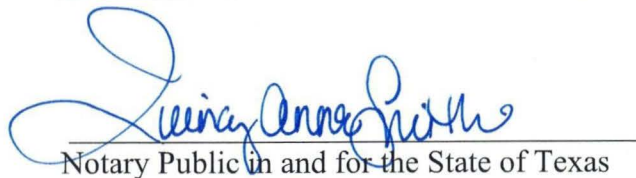 Quincy Anne Smith
Notary Public in and for the State of Texas